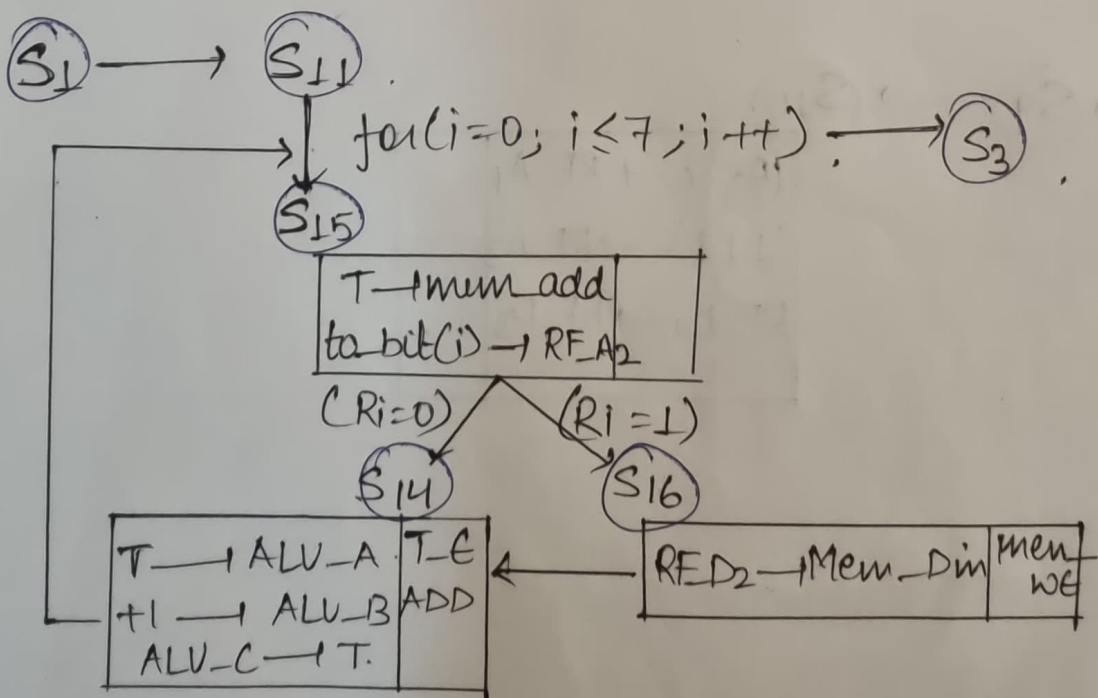 S1 → S11 .
for(i=0; i≤7; i++) . → S3 .
S15
T→mem_add
to_bit(i)→RF_A2
(Ri=0) (Ri=1)
S14 S16
T→ALU_A T_E
+1→ALU_B ADD
ALU_C→T.
RF_D2→Mem_Din mem_
WE